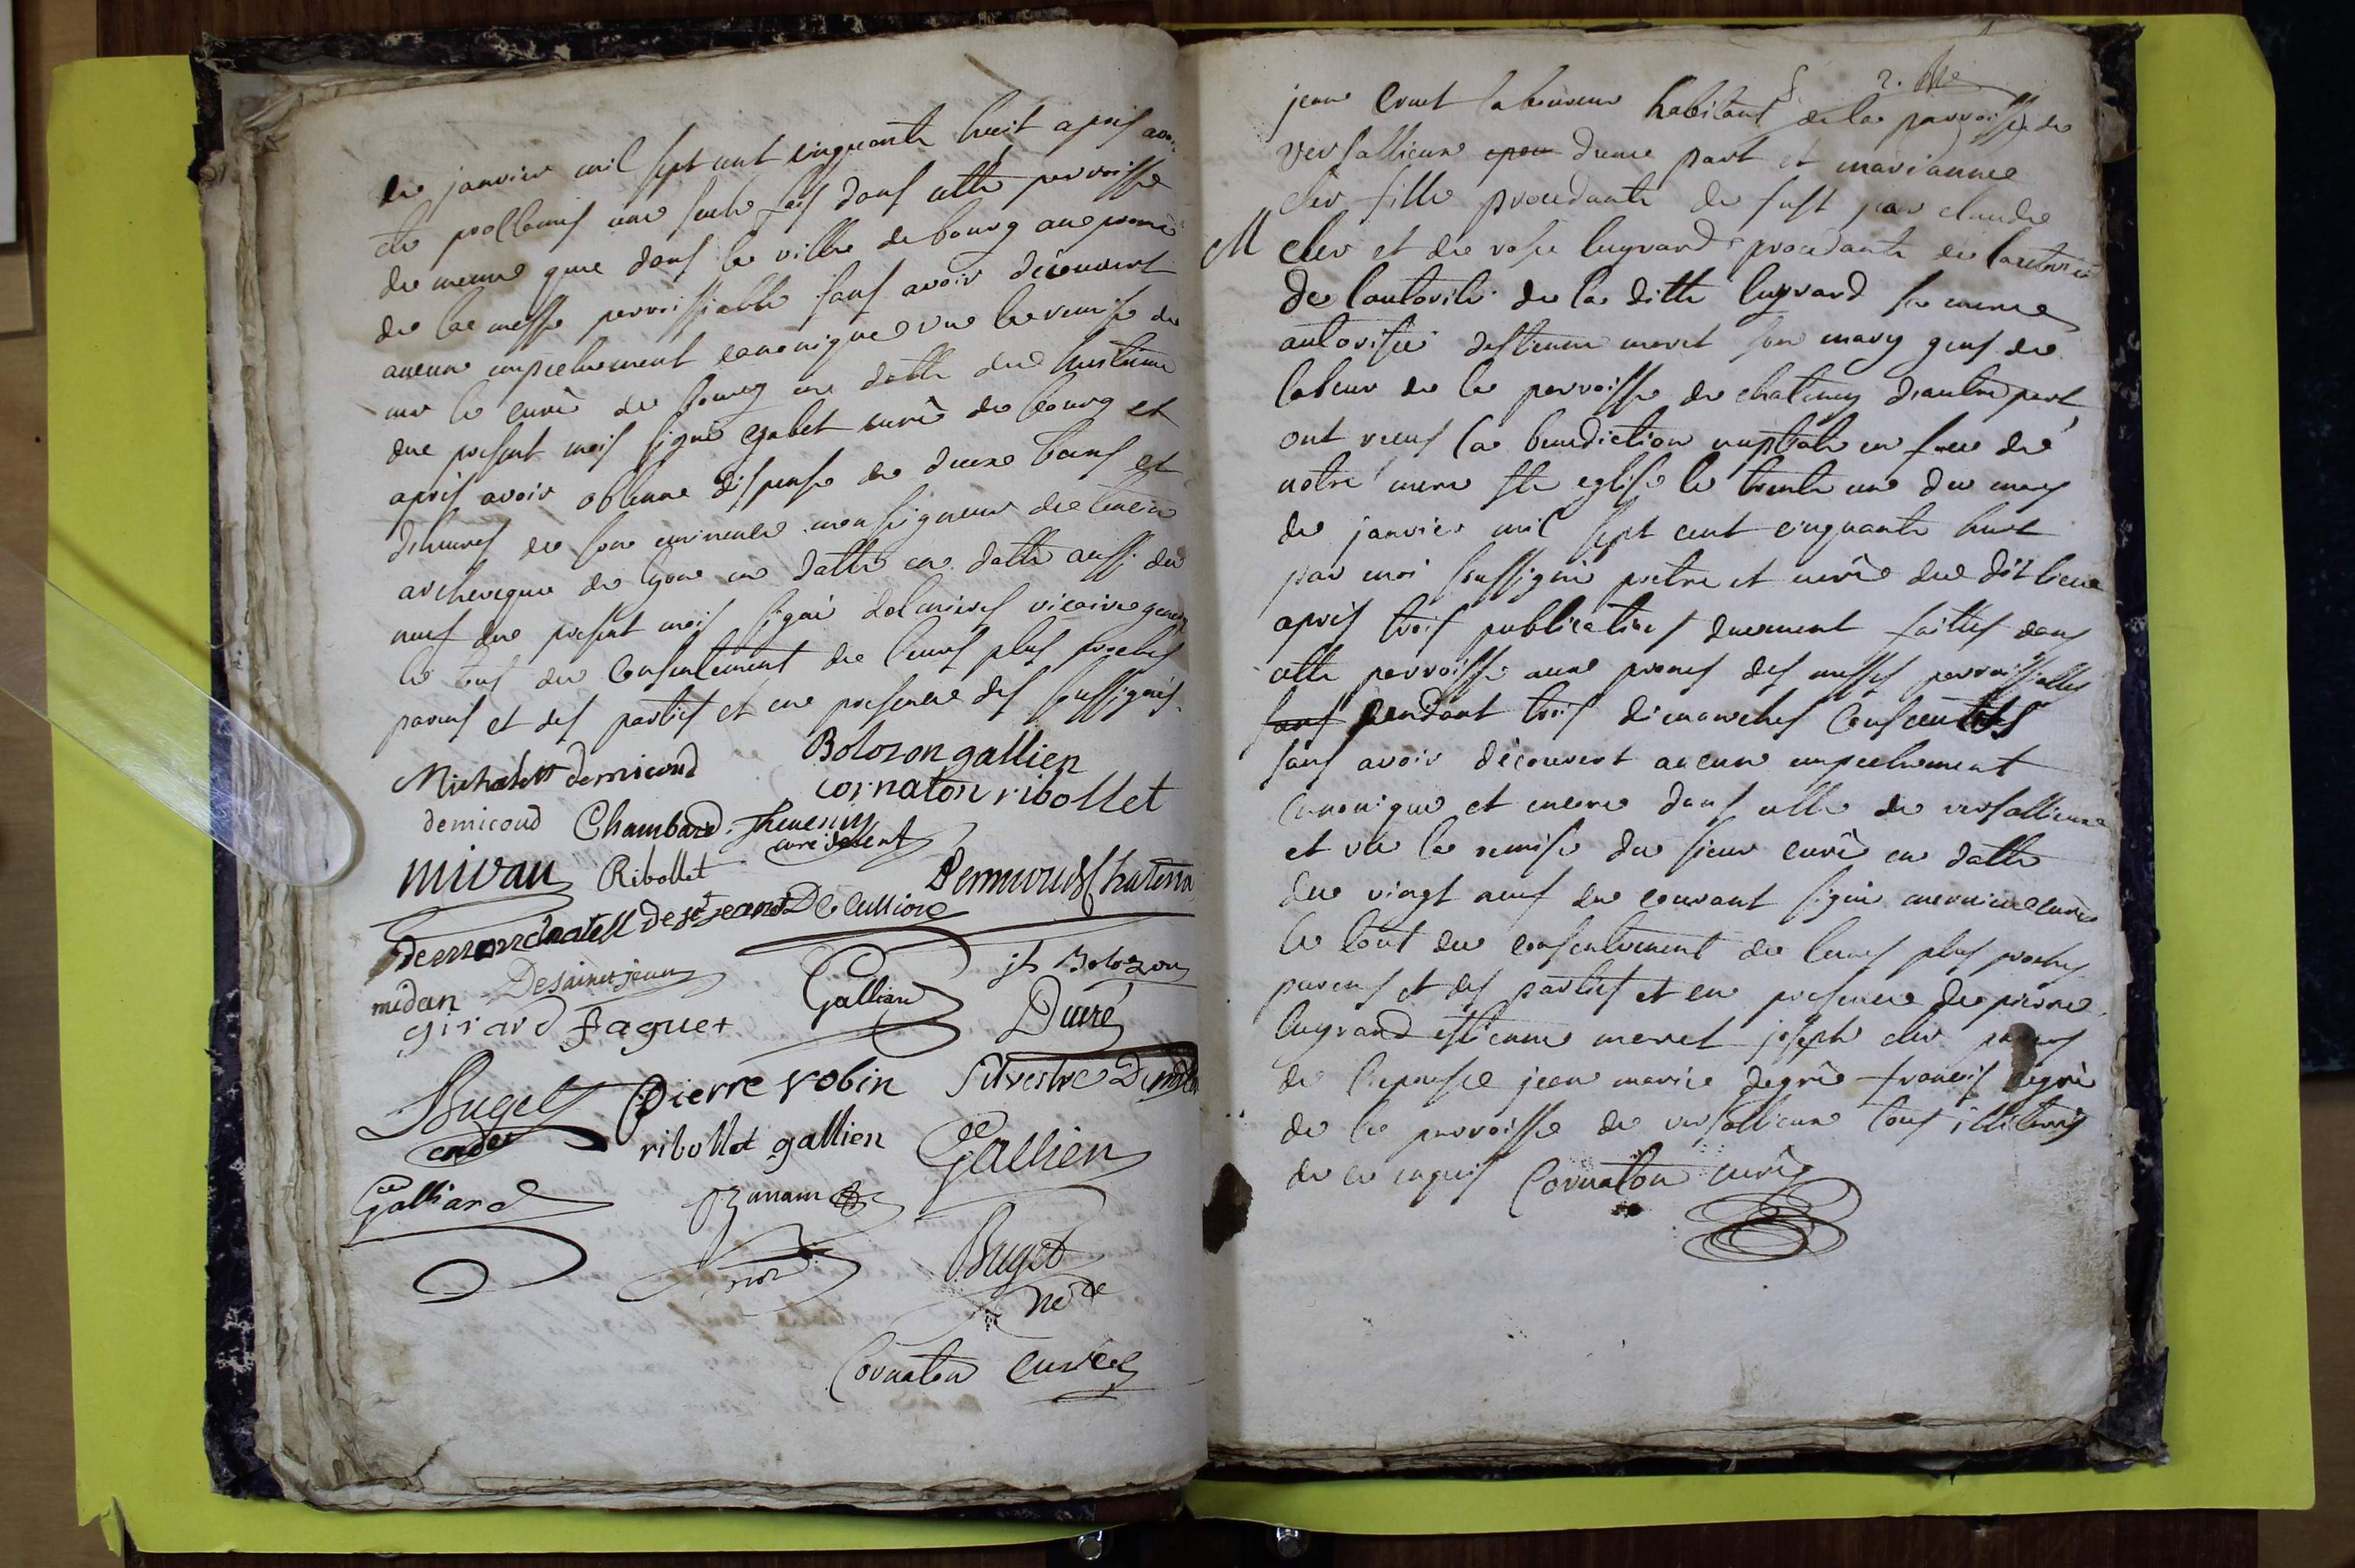 de janvier mil sept cent cinquante huit apres avoir
ete proclamés une seule fois dans cette parroisse
de meme que dans la ville de bourg au prone
de la messe parroissialle sans avoir découvert
aucun empechement canonique vue la remise de
mr le curé de bourg en datte du huitieme
du present mois signé gabet curé de bourg et
apres avoir obtenu dispense de deux bans et
d'heures de son eminence monseigneur de tencin
archeveque de lyon en datte en datte aussi du
neuf du present mois signé vicaire general
le tous du consentement de leurs plus proches
parens et des parties et en presence des soussignés.
Michalett demicoud Bolozon gallien
cornaton ribollet
demicoud Chambard Thevenin
curé
mivau Ribollet
de st jean
midan Desaintjean Gallian jh Bolozon
girard Jaguet Ducré
Buget Pierre robin Silvestre
cadet ribollet gallien Gallien
Galliard
Buget
Cornaton curé
2.
jean laboureur habitant de la parroisse de
versallieux d'une part et marianne
cler fille procedante de fust jean claude
M cler et de rose lugrand procedante de l'autorité
de l'autorité de la ditte lugrand sa mere
autorisée d'estienne moret son mary gens de
labeur de la parroisse de chatenay d'autre part
ont reçus la benediction nuptiale en face de
notre mere ste eglise le trente un du mois
de janvier mil sept cent cinquante huit
par moi soussigné pretre et curé du dit lieu
apres trois publications duement faittes dans
cette parroisse aux prones des messes parroissialles
sans pendant trois dimanches consecutifs
sans avoir découvert aucun empechement
canonique et encore dans celle de versallieux
et vu la remise du sieur curé en datte
du vingt neuf du courant signé curé
le tout du consentement de leurs plus proches
parens et des parties et en presence de pierre
lugrand estienne moret joseph cler parens
de l'epouse jean marie degré francois degré
de la parroisse de versallieux tous illiterés
de ce enquis Cornaton curé